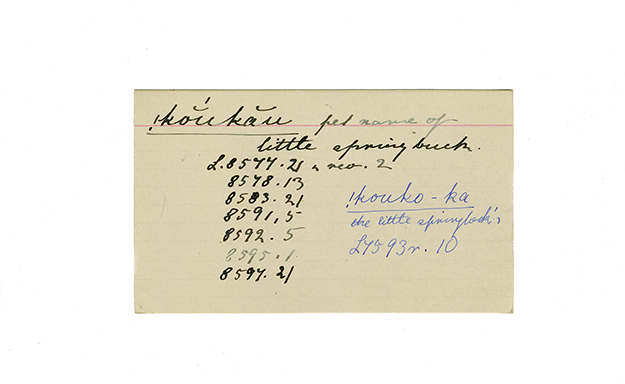 !kŏŭkăŭ pet name of
little springbuck.
L. 8577. 21 & rev. 2
8578. 13
8583. 21
8591, 5
8592. 5
8595. 1.
8597. 21
!kouko-ka
the little springbock's
L 7593r. 10